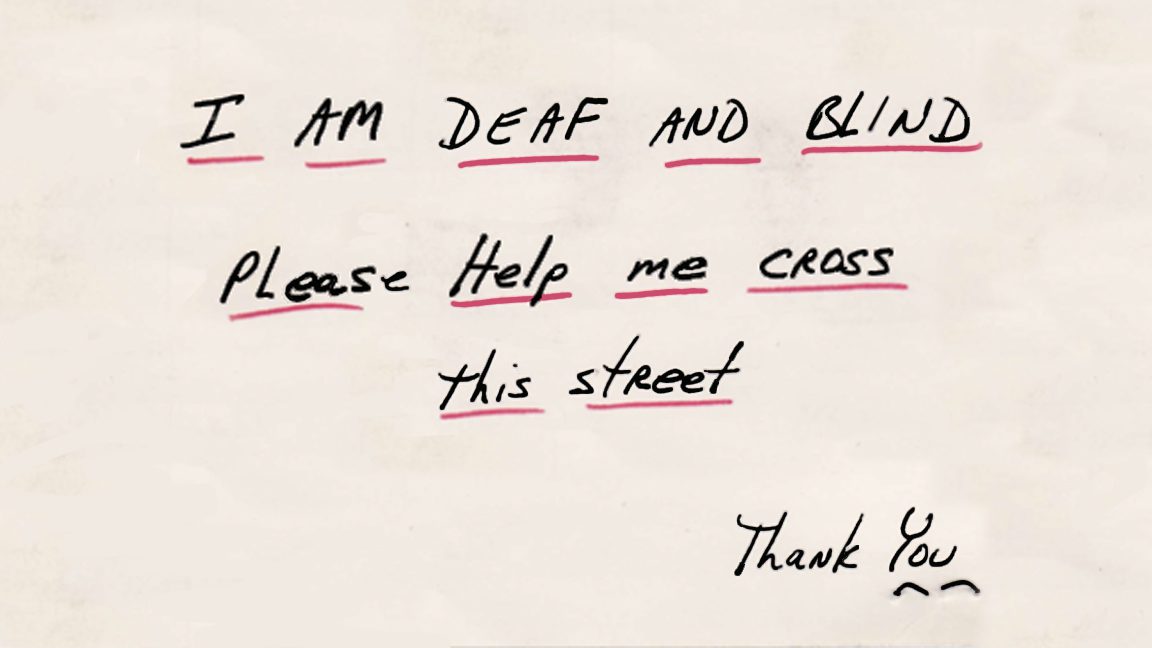 I AM DEAF AND BLIND
Please Help me cross
this street
Thank You